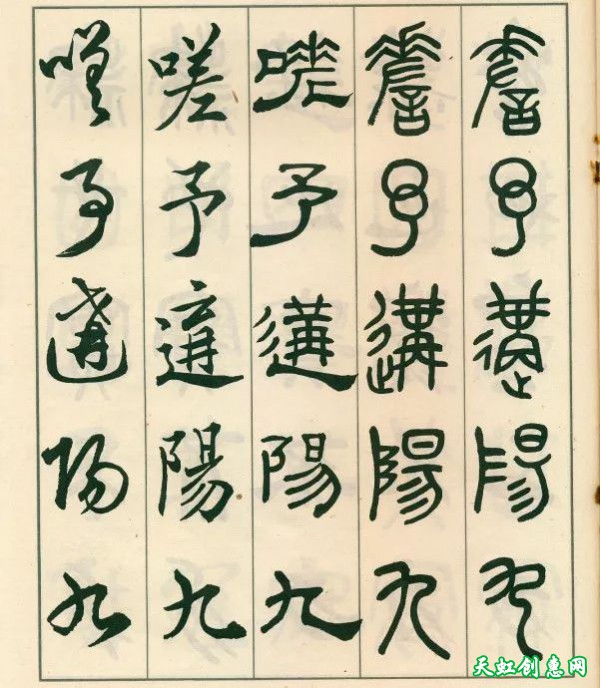 嗟予遘陽九
嗟予遘陽九
嗟予遘陽九
嗟予遘陽九
嗟予遘陽九
天虹创惠网